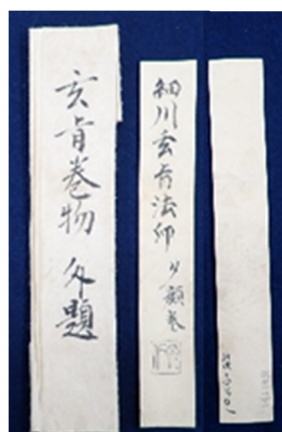 玄旨巻物 外題
細川玄旨法印 夕顔巻